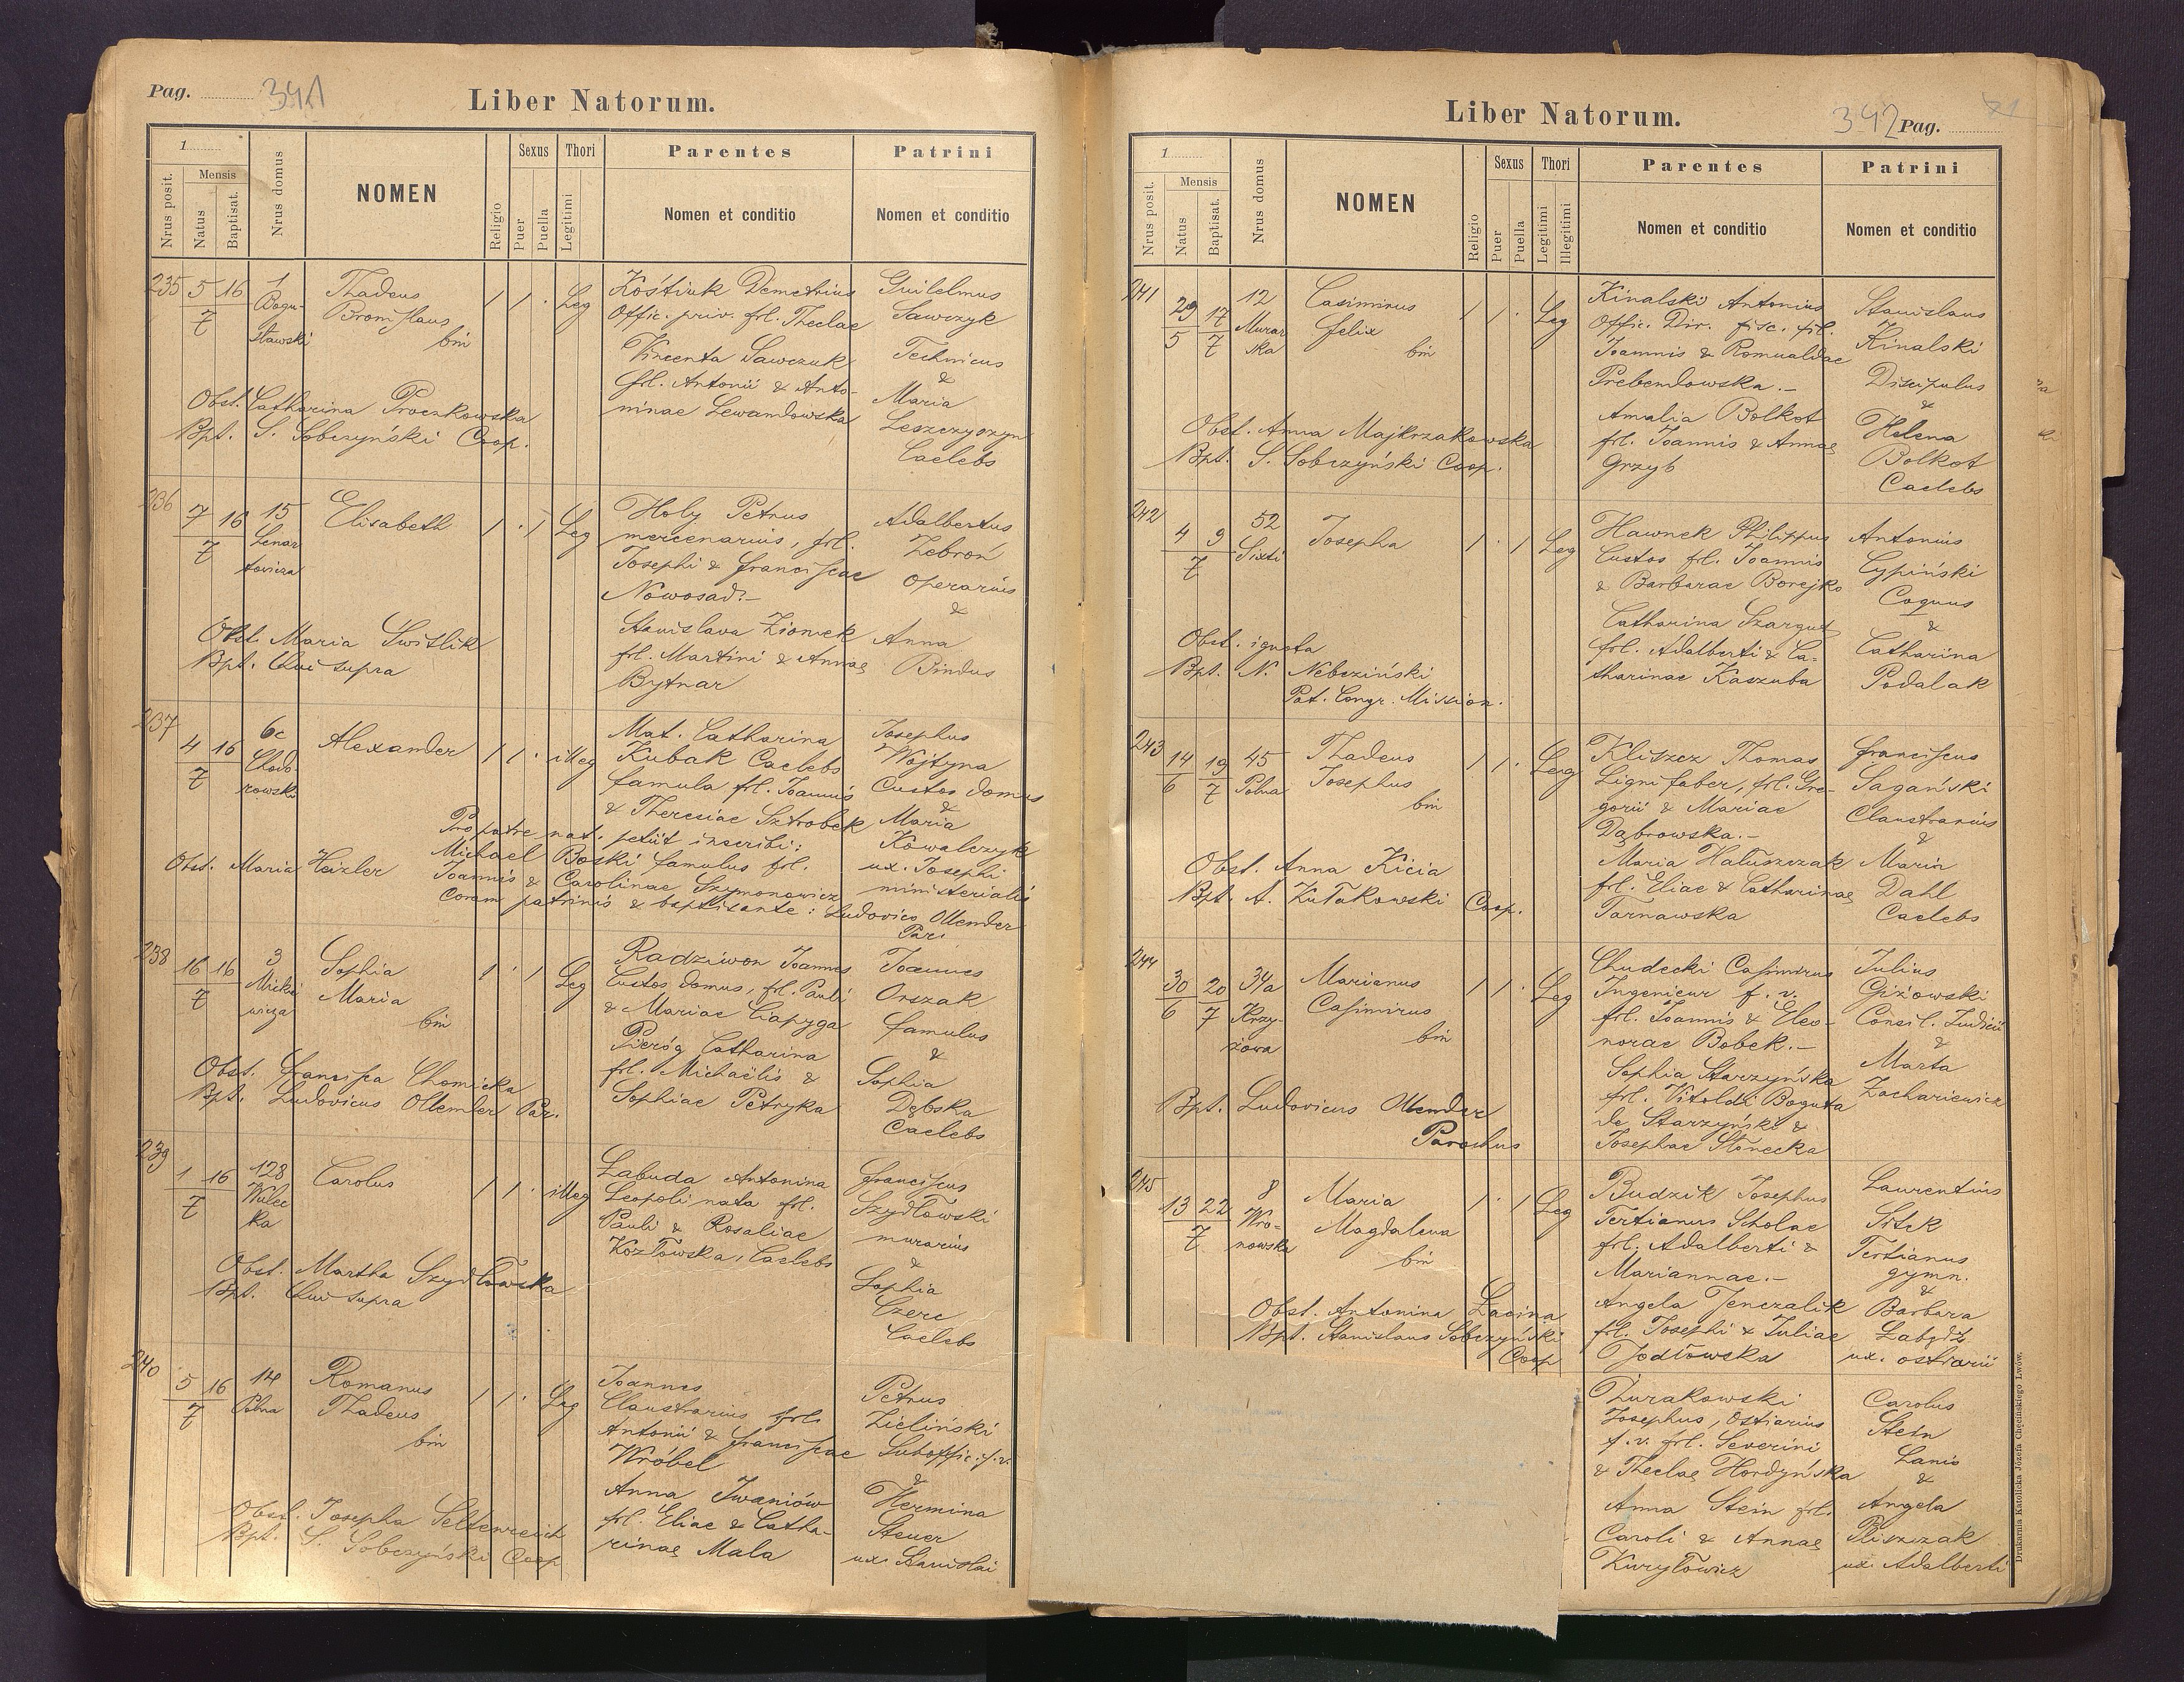 Pag. 341
Liber Natorum.
1
Mensis
Nrus posit.
Natus
Baptisat.
Nrus domus
NOMEN
Religio
Sexus
Puer
Puella
Thori
Legitimi
Parentes
Nomen et conditio
Patrini
Nomen et conditio
235 5 16 1 Thadeus 1 1 . Leg Kóstiuk Demetrius Guilelmus
7 Bogu- Bronislaus Offic. priv. frl. Theclae Sawczyk
sławski bin Vincenta Sawczuk Technicus
frl. Antonii & Anto- &
Obst. Catharina Proczkowska ninae Lewandowska Maria
Bpt. S. Sobczyński Coop. Leszczyszyn
Caelebs
236 7 16 15 Elisabeth 1 . 1 Leg Holy Petrus Adalbertus
7 Lenar mercenarius, frl. Zebroń
towicza Josephi & Franciscae Operarius
Nowosad.- &
Obst. Maria Switlik Stanislava Zionek Anna
Bpt. Qui supra frl. Martini & Annae Bindus
Bytnar
237 4 16 6c Alexander 1 1 . illeg Mat. Catharina Josephus
7 Chodo- Kubak Caelebs Wojtyna
rowski famula frl. Joannis Custos domus
& Theresiae Sztrobek &
Maria
Pro patre nat. petiit inscribi: Kowalczyk
Obst. Maria Heizler Michael Boski famulus frl. ux. Josephi
Joannis & Carolinae Szymonowicz ministerialis
Coram patrinis & baptisante: Ludovico Ollender
Par.
238 16 16 3 Sophia 1 . 1 Leg Radziwon Joannes Joannes
7 Micki Maria Custos domus, frl. Pauli Orszak
wicza bin & Mariae Capyga famulus
Pieróg Catharina &
Obst. Francisca Chomicka frl. Michaëlis & Sophia
Bpt. Ludovicus Ollender Par. Sophiae Petryka Dębska
Caelebs
239 1 16 128 Carolus 1 1 . illeg Labuda Antonina Franciscus
7 Wulec Leopoli nata frl. Szydłowski
ka Pauli & Rosaliae murarius
Kozłowska, Caelebs &
Obst. Martha Szydłowska Sophia
Bpt. Qui supra Czerc
Caelebs
240 5 16 14 Romanus 1 1 . Leg Joannes Petrus
7 Polna Thadeus Claustrarius frl. Zieliński
bin Antonii & Franciscae Suboffic. f. v.
Wróbel &
Anna Iwaniów Hermina
Obst. Josepha Seltenreich frl. Eliae & Catha- Steuer
Bpt. S. Sobczyński Coop rinae Mala ux. Stanislai
Liber Natorum.
342 Pag.
1
Mensis
Nrus posit.
Natus
Baptisat.
Nrus domus
NOMEN
Religio
Sexus
Puer
Puella
Thori
Legitimi
Illegitimi
Parentes
Nomen et conditio
Patrini
Nomen et conditio
241 29 17 12 Casimirus 1 1 . Leg Kinalski Antonius Stanislaus
5 7 Murar Felix Offic. Dir. fisc. frl. Kinalski
ska bin Joannis & Romualdae Discipulus
Prebendowska.- &
Obst. Anna Majkrzakowska Amalia Bolkot Helena
Bpt. S. Sobczyński Coop. frl. Joannis & Annae Bolkot
Grzyb Caelebs
242 4 9 52 Josepha 1 . 1 Leg Hawnek Philippus Antonius
7 Sixti Custos frl. Joannis Cypiński
& Barbarae Borejko Coquus
Catharina Szargut &
Obst. ignota frl. Adalberti & Ca- Catharina
Bpt. N. Nebeziński tharinae Kaszuba Podalak
Pat. Congr. Mission.
243 14 19 45 Thadeus 1 1 . Leg Kliszcz Thomas Franciscus
6 7 Polna Josephus Lignifaber, frl. Gre- Sagański
bin gorii & Mariae Claustrarius
Dąbrowska.- &
Obst. Anna Kicia Maria Hałuszczak Maria
Bpt. A. Kułakowski Coop. frl. Eliae & Catharinae Dahl
Tarnawska Caelebs
244 30 20 34a Marianus 1 1 . Leg Chudecki Casimirus Julius
6 7 Krzy- Casimirus Ingenieur f. v. Giżowski
żowa bin frl. Joannis & Eleo- Consil. Judicii
norae Bobek.- &
Sophia Starzyńska Marta
Bpt. Ludovicus Ollender frl. Vitoldi Boguta Zachariewicz
Parochus de Starzyński &
Josephae Słonecka
245 13 22 8 Maria 1 . 1 Leg Budzik Josephus Laurentius
7 Wro- Magdalena Tertianus Scholae Sitek
nowska bin frl. Adalberti & Tertianus
Mariannae.- gymn.
&
Obst. Antonina Lacina Angela Jenczalik Barbara
Bpt. Stanislaus Sobczyński frl. Josephi & Juliae Łabędź
Coop Jodłowska ux. ostiarii
Żurakowski Carolus
Josephus, Ostiarius Stein
f. v. frl. Severini Lanio
& Theclae Hordyńska &
Anna Stein frl. Angela
Caroli & Annae Pliszczak
Kuryłowicz ux. Adalberti
Drukarnia Katolicka Józefa Chęcińskiego Lwów.